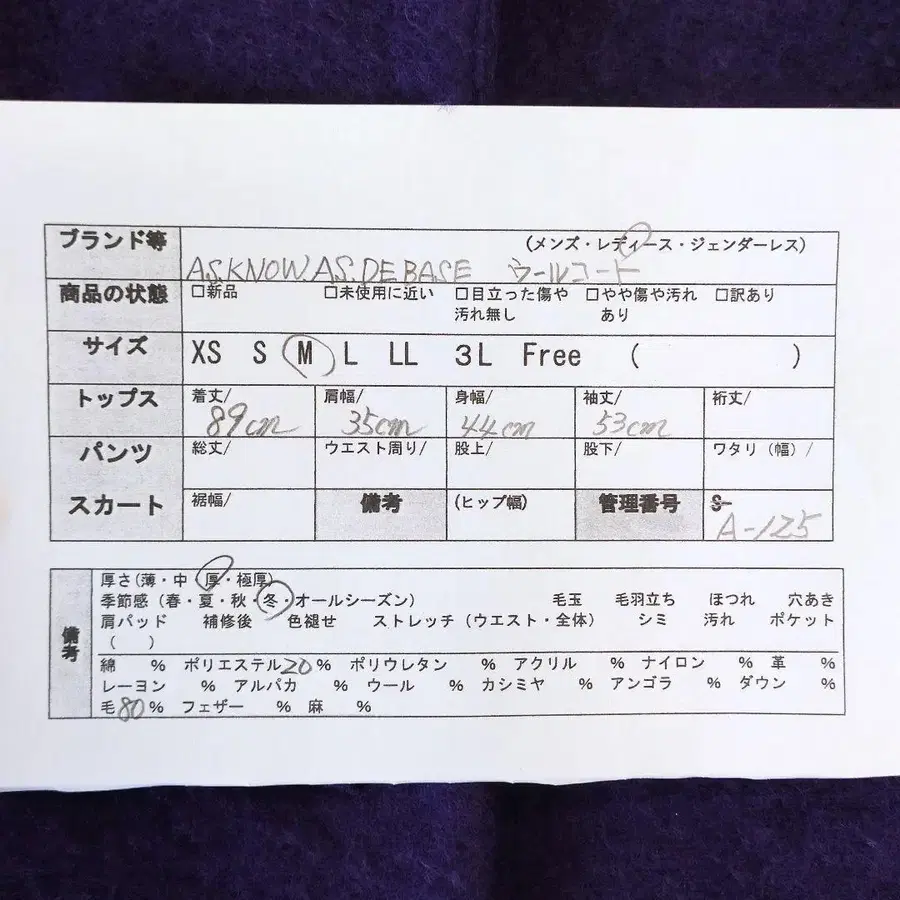 ブランド等 (メンズ・レディース・ジェンダーレス)
A.S.KNOW.A.S.DE.BASE ウールコート
商品の状態 □新品 □未使用に近い □目立った傷や汚れ無し □やや傷や汚れあり □訳あり
サイズ XS S M L LL 3L Free ( )
トップス 着丈/ 89cm 肩幅/ 35cm 身幅/ 44cm 袖丈/ 53cm 裄丈/
パンツ 総丈/ ウエスト周り/ 股上/ 股下/ ワタリ(幅)/
スカート 裾幅/ 備考 (ヒップ幅) 管理番号 S- A-125
備考
厚さ(薄・中・厚・極厚)
季節感 (春・夏・秋・冬・オールシーズン) 毛玉 毛羽立ち ほつれ 穴あき
肩パッド 補修後 色褪せ ストレッチ(ウエスト・全体) シミ 汚れ ポケット
( )
綿 % ポリエステル20% ポリウレタン % アクリル % ナイロン % 革 %
レーヨン % アルパカ % ウール % カシミヤ % アンゴラ % ダウン %
毛80% フェザー % 麻 %